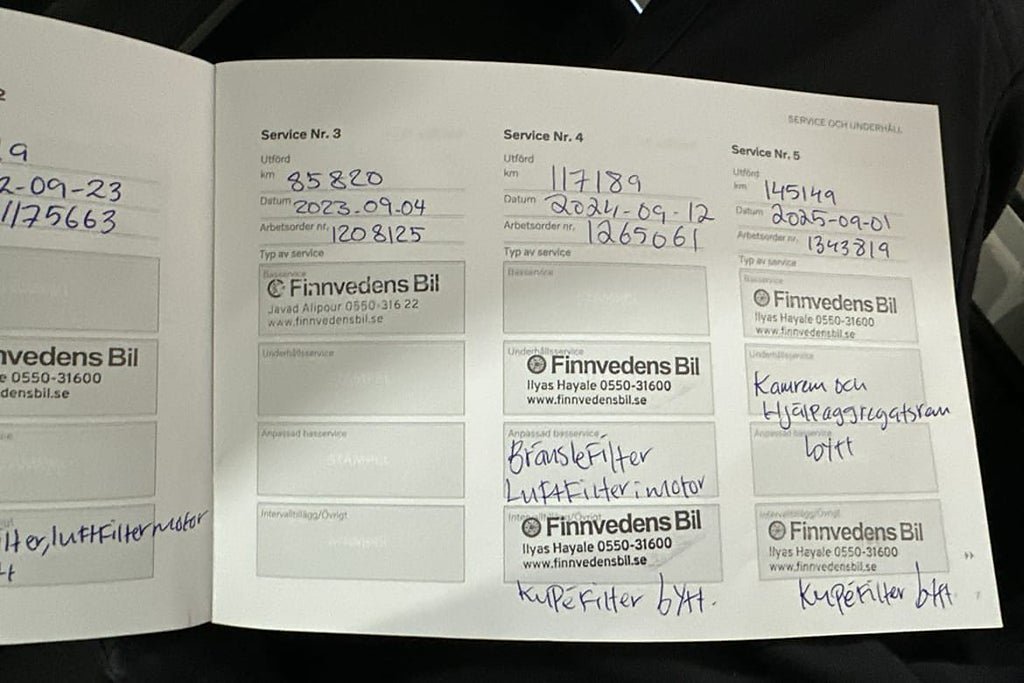 2
9
2-09-23
1175663
nvedens Bil
e 0550-31600
densbil.se
lter, luftFilter motor
tt
SERVICE OCH UNDERHÅLL
Service Nr. 3
Utförd
km 85820
Datum 2023.09.04
Arbetsorder nr. 1208125
Typ av service
Basservice
Finnvedens Bil
Javad Alipour 0550-316 22
www.finnvedensbil.se
Underhållsservice
Anpassad basservice
STÄMPEL
Intervalltillägg/Övrigt
Service Nr. 4
Utförd
km 117189
Datum 2024-09-12
Arbetsorder nr. 1265061
Typ av service
Basservice
Underhållsservice
Finnvedens Bil
Ilyas Hayale 0550-31600
www.finnvedensbil.se
Anpassad basservice
BränsleFilter
LuftFilter i motor
Intervalltillägg/Övrigt
Finnvedens Bil
Ilyas Hayale 0550-31600
www.finnvedensbil.se
KupéFilter bytt.
Service Nr. 5
Utförd
km 145149
Datum 2025-09-01
Arbetsorder nr. 1343819
Typ av service
Basservice
Finnvedens Bil
Ilyas Hayale 0550-31600
www.finnvedensbil.se
Underhållsservice
Kamrem och
Hjälpaggregatsrem
Anpassad basservice
bytt
Intervalltillägg/Övrigt
Finnvedens Bil
Ilyas Hayale 0550-31600
www.finnvedensbil.se
KupéFilter bytt
7